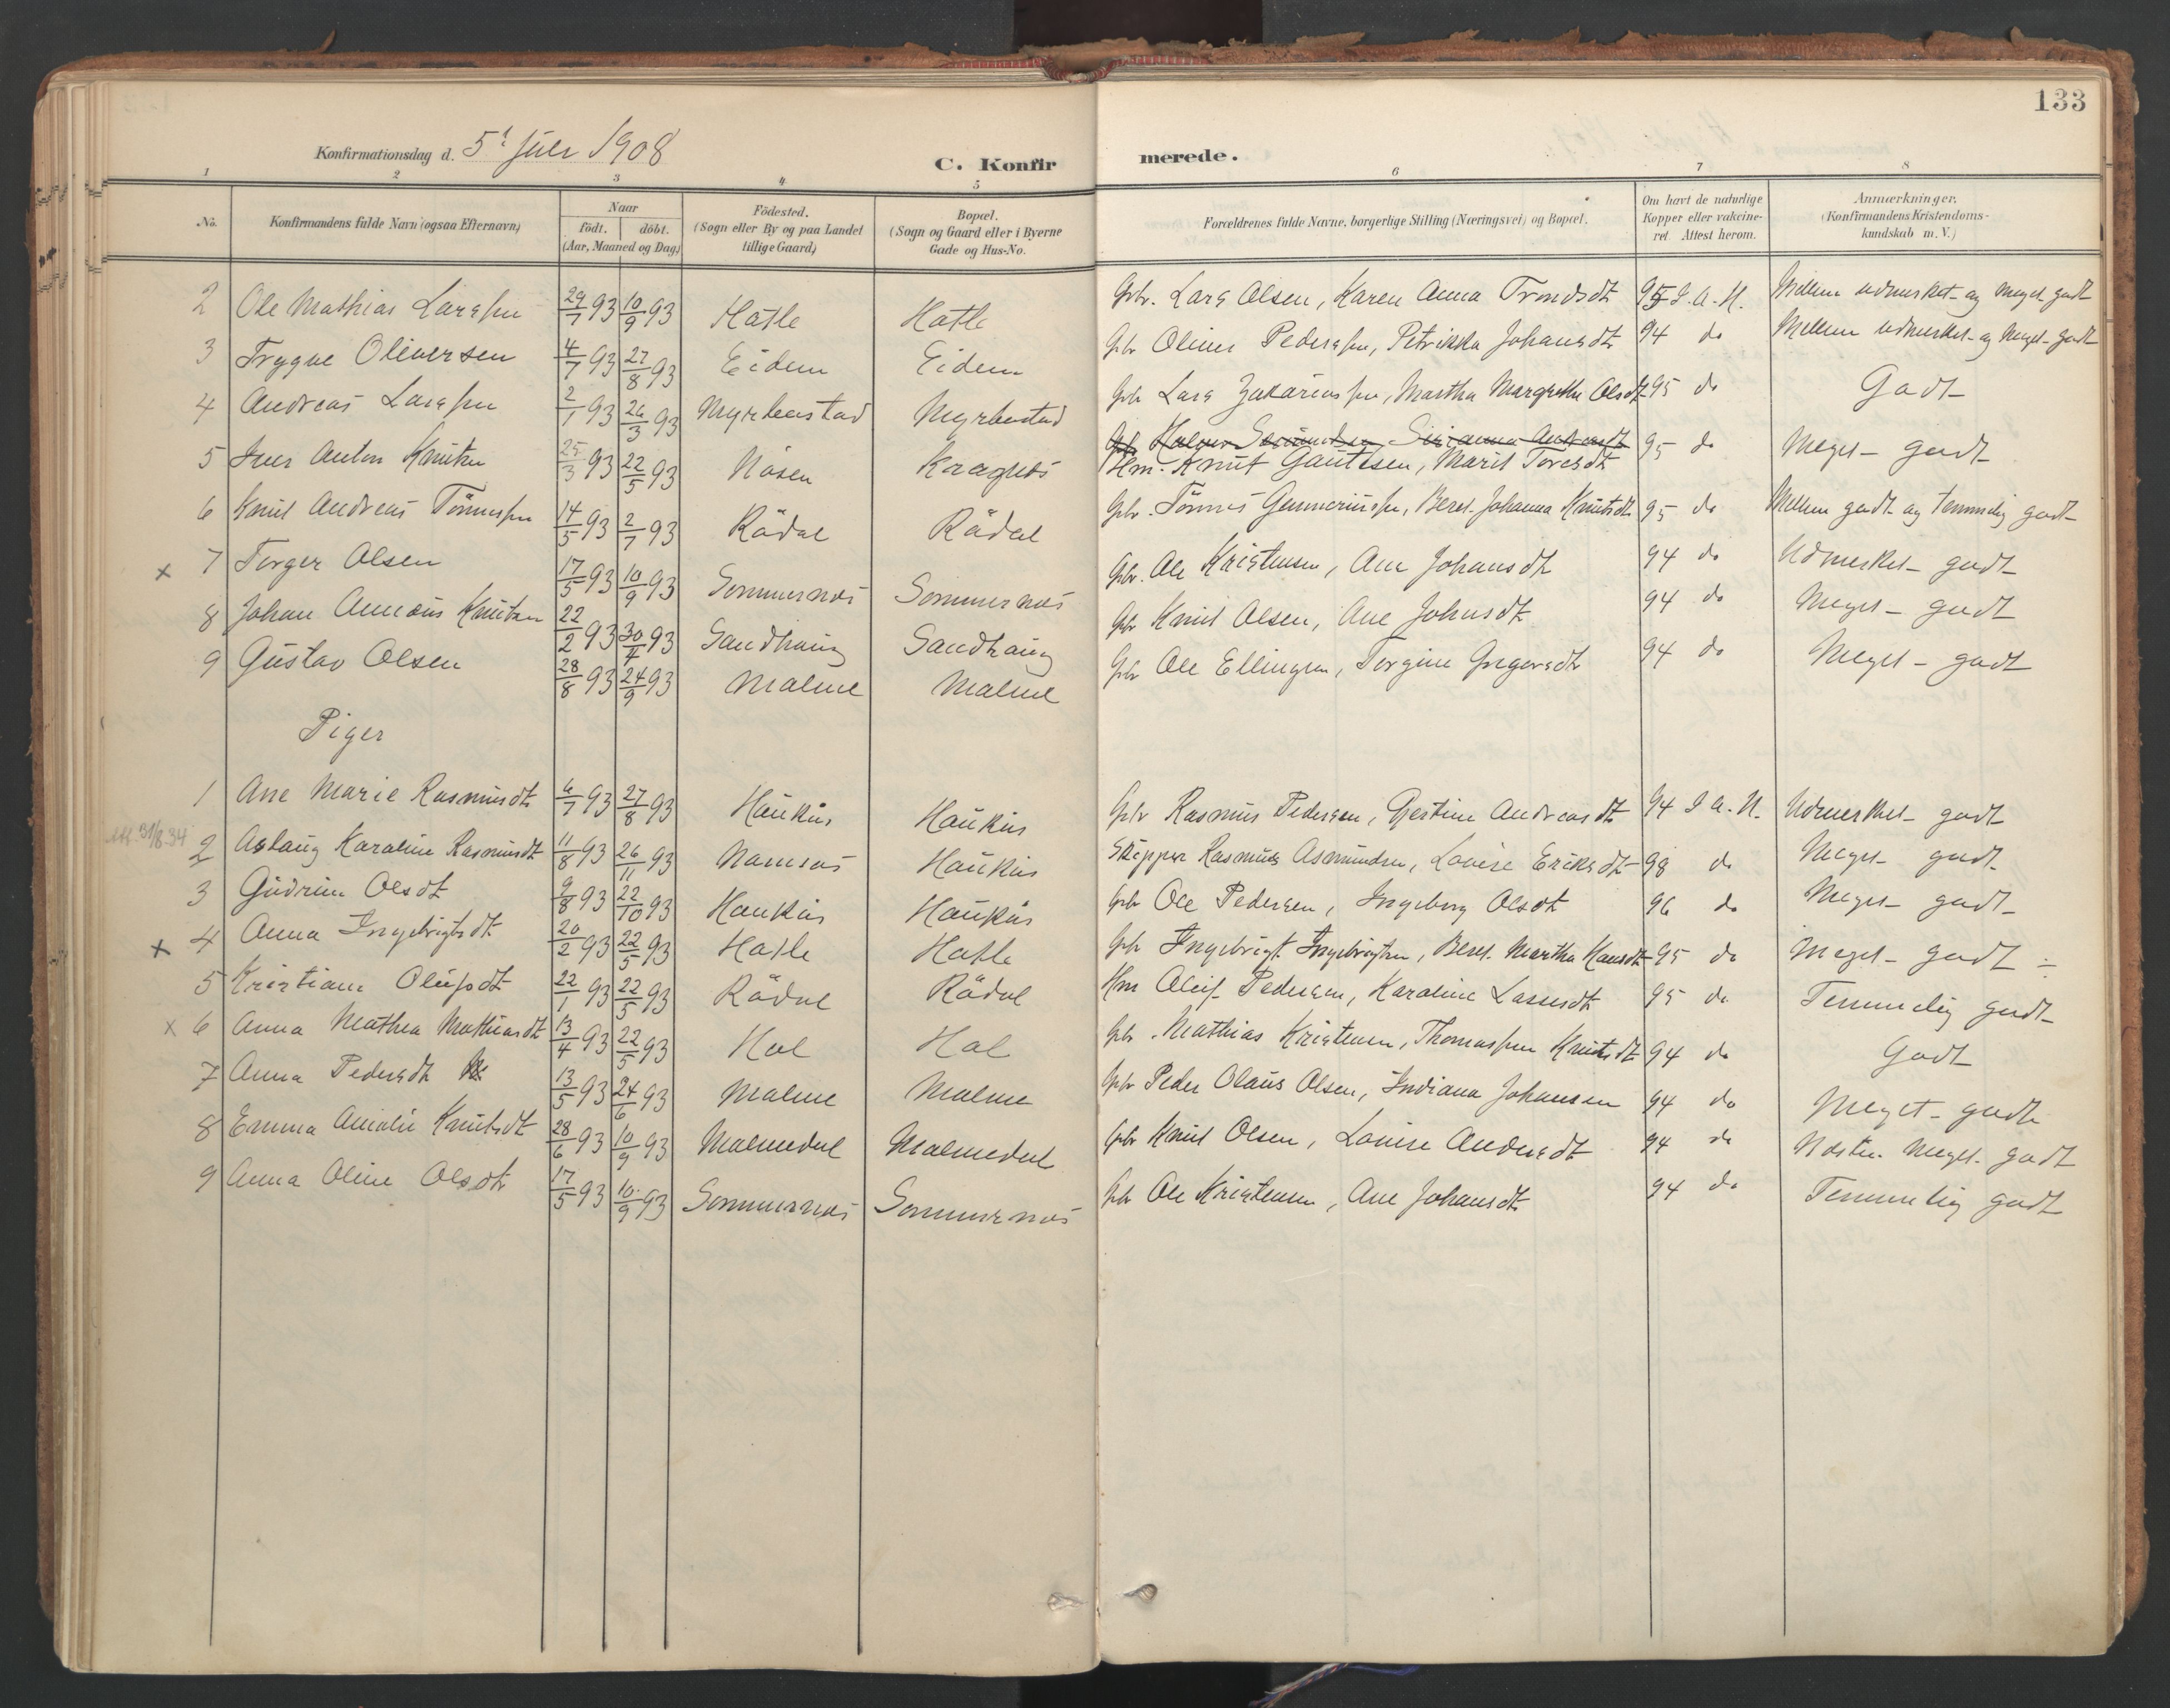 133
Konfirmationsdag d. 5t Juli 1908
C. Konfirmerede.
1 2 3 4 5 6 7 8
No. Konfirmandens fulde Navn (ogsaa Efternavn) Naar födt. döbt. (Aar, Maaned og Dag) Födested. (Sogn eller By og paa Landet tillige Gaard) Bopæl. (Sogn og Gaard eller i Byerne Gade og Hus-No. Forældrenes fulde Navne, borgerlige Stilling (Næringsvei) og Bopæl. Om havt de naturlige Kopper eller vakcineret. Attest herom. Anmærkninger. (Konfirmandens Kristendomskundskab m. V.)
2 Ole Mathias Larssen 29/7 93 10/9 93 Hatle Hatle Gbr. Lars Olsen, Karen Anna Trondsdt 95 I. A. N. Mellem udmerket og meget godt
3 Trygve Oliversen 4/7 93 27/8 93 Eidem Eidem Gbr Oliver Pederssen, Petrikka Johansdt 94 do Mellem udmerket og meget godt
4 Andreas Larssen 2/1 93 26/3 93 Myrbostad Myrbostad Gbr Lars Zakariassen, Martha Margrethe Olsdt 95 do Godt
5 Iver Anton Knutsen 25/3 93 22/5 93 Nåsen Kragnes Hm. Knut Gautesen, Marit Toresdt 95 do Meget godt
6 Knut Andreas Tönnessen 14/5 93 2/7 93 Rådal Rådal Gbr. Tönnes Gunneriussen, Beret Johanna Knutsdt 95 do Mellem godt og temmelig godt
x 7 Torger Olsen 17/5 93 10/9 93 Sommernes Sommernes Gbr. Ole Kristensen, Ane Johansdt 94 do Udmerket godt
8 Johan Anneus Knutsen 22/2 93 30/4 93 Sandhaug Sandhaug Gbr Knut Olsen, Ane Johnsdt 94 do Meget godt
9 Gustav Olsen 28/8 93 24/9 93 Malme Malme Gbr Ole Ellingsen, Torgine Gregersdt 94 do Meget godt
Piger
1 Ane Marie Rasmusdt 6/7 93 27/8 93 Haukås Haukås Gbr Rasmus Pedersen, Gjertine Andreasdt 94 I A. N. Udmerket godt
31/8 34 2 Aslaug Karoline Rasmusdt 11/8 93 26/11 93 Namsos Haukås Skipper Rasmus Asmundsen, Lovise Eriksdt 98 do Meget godt
3 Gudrun Olsdt 9/8 93 22/10 93 Haukås Haukås Gbr Ole Pedersen, Ingeborg Olsdt 96 do Meget godt
x 4 Anna Ingebrigtsdt 20/2 93 22/5 93 Hatle Hatle Gbr Ingebrigt Ingebrigtsen, Beret Martha Hansdt 95 do Meget godt ÷
5 Kristiane Olufsdt 22/1 93 22/5 93 Rådal Rådal Hm Oluf Pedersen, Karoline Lassesdt 95 do Temmelig godt
x 6 Anna Mathea Mathiasdt 13/4 93 22/5 93 Hol Hol Gbr. Mathias Kristensen, Thomassen Knutsdt 94 do Godt
7 Anna Pedersdt 13/5 93 24/6 93 Malme Malme Gbr Peder Olaus Olsen, Indiana Johansen 94 do Meget godt
8 Emma Amalie Knutsdt 28/6 93 10/9 93 Malmedal Malmedal Gbr Knut Olsen, Lovise Andersdt 94 do Næsten meget godt
9 Anna Oline Olsdt 17/5 93 10/9 93 Sommernes Sommernes Gbr Ole Kristensen, Ane Johansdt 94 do Temmelig godt